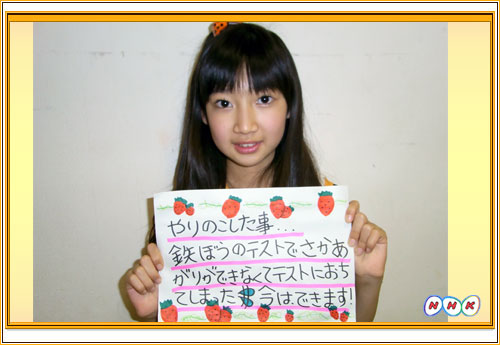 やりのこした事...
鉄ぼうのテストでさかあ
がりができなくてテストにおち
てしまった 今はできます!
NHK